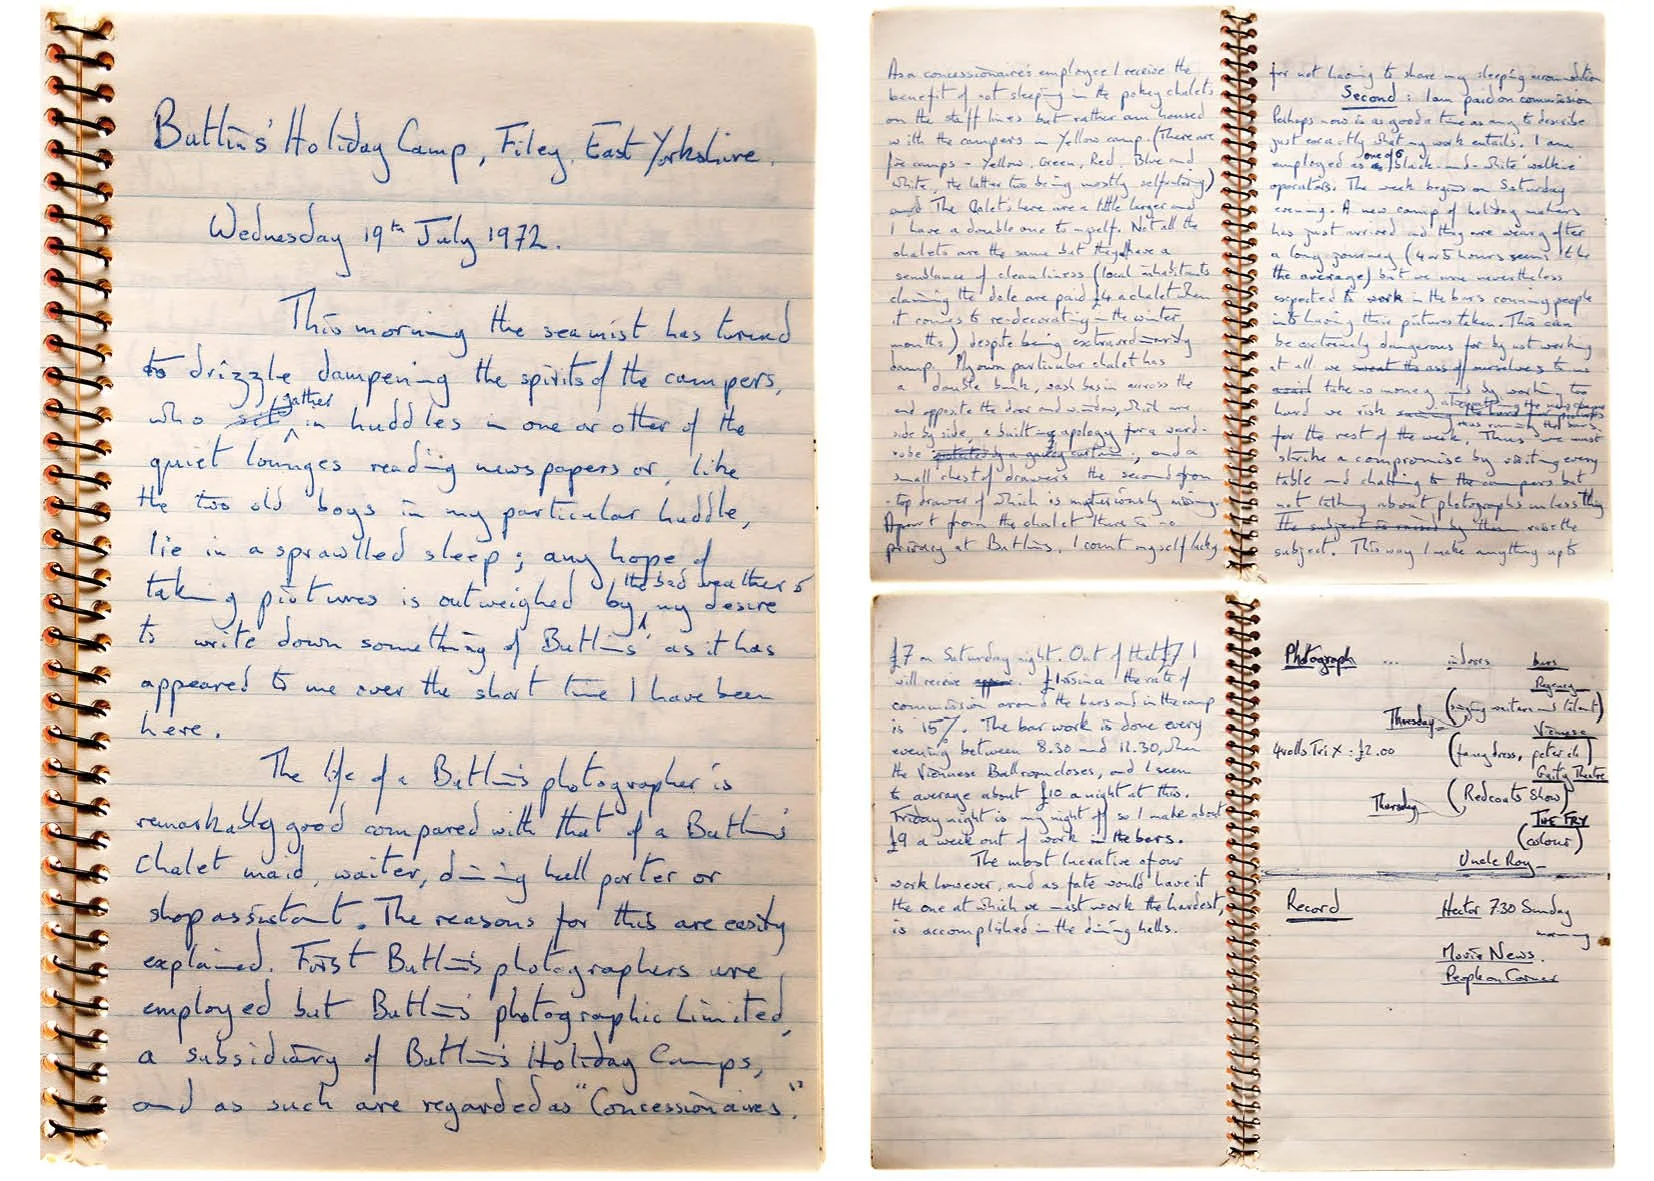 Butlins' Holiday Camp, Filey, East Yorkshire.
Wednesday 19th July 1972.
This morning the seamist has turned
to drizzle dampening the spirits of the campers,
who gather in huddles in one or other of the
quiet lounges reading newspapers or, like
the two old boys in my particular huddle,
lie in a sprawlled sleep; any hope of
taking pictures is outweighed by the bad weather & my desire
to write down something of Butlins' as it has
appeared to me over the short time I have been
here.
The life of a Butlin's photographer is
remarkably good compared with that of a Butlin's
chalet maid, waiter, dining hall porter or
shop assistant. The reasons for this are easily
explained. First Butlin's photographers are
employed but Butlin's photographic Limited,
a subsidiary of Butlin's Holiday Camps,
and as such are regarded as "Concessionaires."
As a concessionaire's employee I receive the
benefit of not sleeping in the pokey chalets
on the staff lines but rather am housed
with the campers in Yellow camp. (There are
five camps - Yellow, Green, Red, Blue and
White, the latter two being mostly selfcatering)
and The Chalets here are a little larger and
I have a double one to myself. Not all the
chalets are the same but they have a
semblance of cleanliness (local inhabitants
claiming the dole are paid £4 a chalet when
it comes to re-decorating in the winter
months), despite being extraordinarily
damp. My own particular chalet has
a double bunk, wash basin across the
end opposite the door and window, which are
side by side, a built-in apology for a ward-
robe protected by a gaudy curtain, and a
small chest of drawers the second from
-top drawer of which is mysteriously missing.
Apart from the chalet there is no
privacy at Butlins. I count myself lucky
for not having to share my sleeping accomodation
Second: I am paid on commission
Perhaps now is as good a time as any to describe
just exactly what my work entails. I am
employed as one of 5 black-and-white 'walkie'
operators. The week begins on Saturday
evening. A new camp of holiday makers
has just arrived and they are weary after
a long journey (4 or 5 hours seems to be
the average) but we are nevertheless
expected to work in the bars conning people
into having their pictures taken. This can
be extremely dangerous for by not working
at all we sweat the ass of ourselves to no
avail take no money and by working too
hard we risk
for the rest of the week. Thus we must
strike a compromise by visiting every
table and chatting to the campers but
not talking about photographs unless they
the subject is raised by them raise the
subject. This way I make anything up to
£7 on Saturday night. Out of that £7 I
will receive £1.05 in a the rate of
commission around the bars and in the camp
is 15%. The bar work is done every
evening between 8.30 and 11.30, when
the Viennese Ballroom closes, and I seem
to average about £10 a night at this.
Friday night is my night off so I make about
£9 a week out of work in the bars.
The most lucrative of our
work however, and as fate would have it
the one at which we must work the hardest,
is accomplished in the dining halls.
Photograph ... indoors bars
Regency
Thursday (singing waiters and talent)
Viennese
4 rolls Tri X : £2.00 (fancy dress, peter ch)
Gaiety Theatre
Thursday (Redcoats Show)
THE FRY
(colour)
Uncle Roy
Record Hector 7.30 Sunday
morning
Movie News.
People on Corner